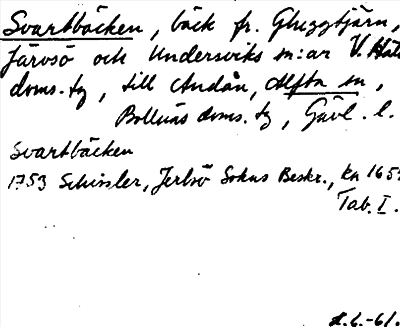 Svartbäcken, bäck fr. Gluggtjärn,
Järvsö och Undersviks sn:ar V. Häls
doms. tg, till Andån, Alfta sn,
Bollnäs doms. tg, Gävl. l.
Svartbäcken
1753 Schissler, Jerbsö Sokns Beskr., kn 165
Tab. I.
-61.